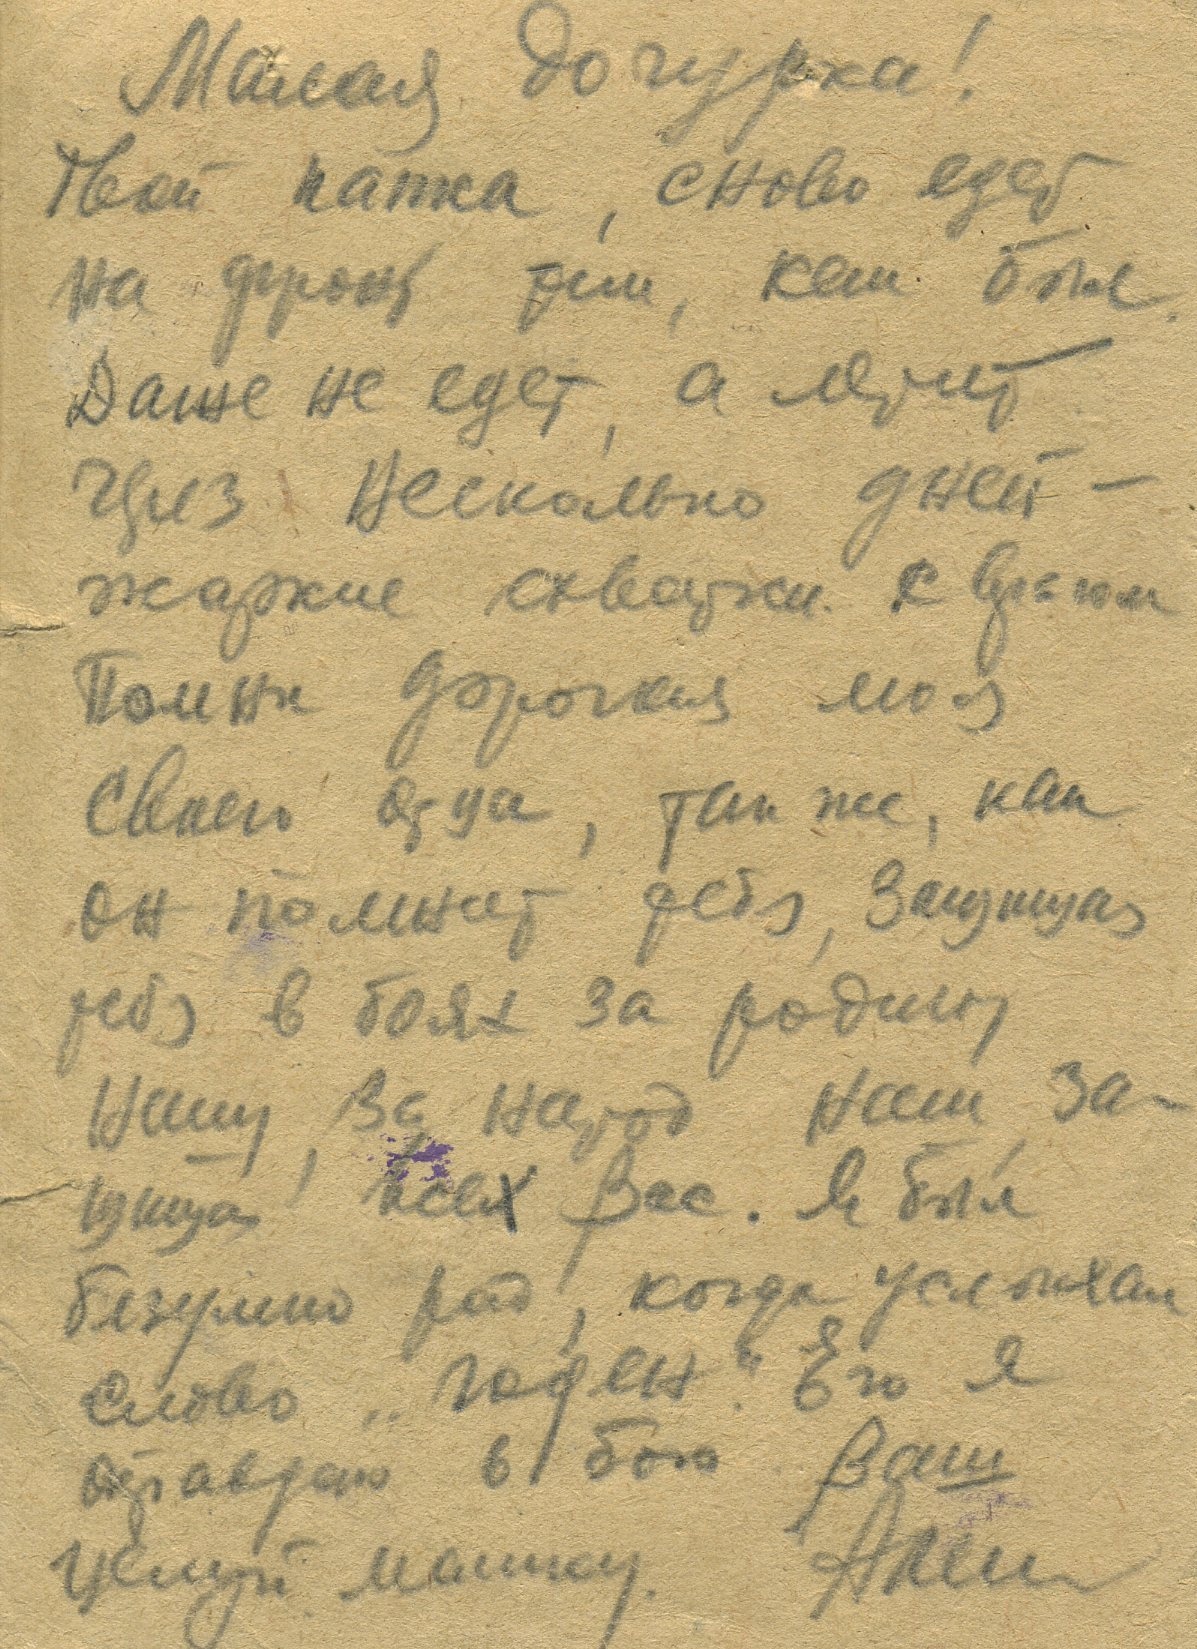 Милая дочурка!
Твой папка, снова едет
на фронт где, как был.
Даже не едет, а летит
через несколько дней –
жаркие схватки с врагом
Помни дорогая моя
своего отца, так же, как
он помнит тебя, защищая
тебя в боях за родину
Нашу, за народ наш, за-
щищая всех Вас. Я был
безумно рад, когда услыхал
слово „годен". Его я
оправдаю в бою Ваш
Целуй мамку.